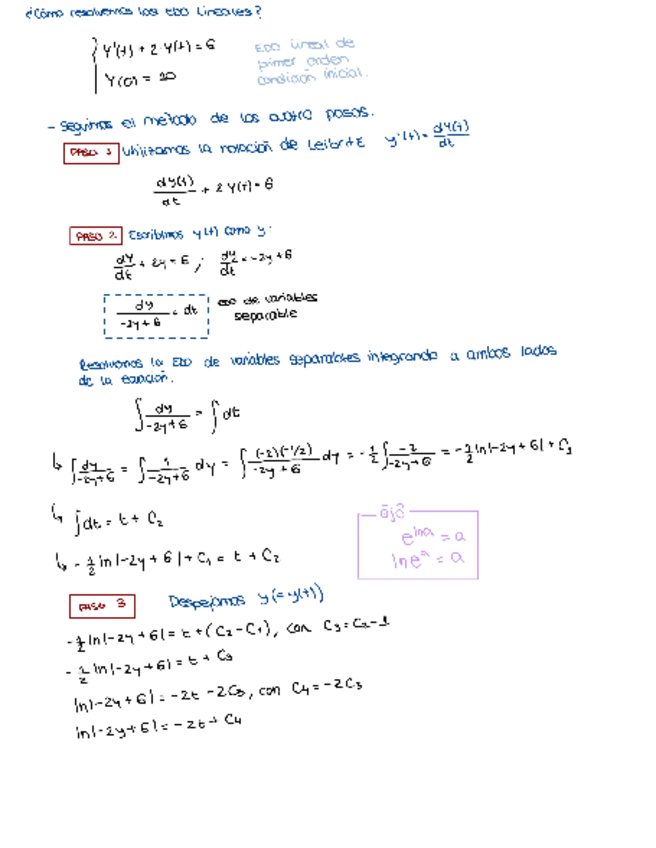 ¿Cómo resolvemos las EDO Lineales?
Y'(t) + 2·Y(t) = 6
Y(0) = 20
EDO Lineal de
primer orden
condición inicial.
- Seguimos el método de los cuatro pasos.
PASO 1 Utilizamos la notación de Leibniz y'(t) = dY(t)/dt
dy(t)/dt + 2 Y(t) = 6
PASO 2. Escribimos y(t) como y.
dy/dt + 2y = 6 ; dy/dt = -2y + 6
dy/(-2y + 6) = dt
EDO de variables
separable
Resolvemos la EDO de variables separables integrando a ambos lados
de la ecuación.
∫ dy/(-2y + 6) = ∫ dt
↳ ∫ dy/(-2y + 6) = ∫ 1/(-2y + 6) dy = ∫ (-2)(-1/2)/(-2y + 6) dy = -1/2 ∫ -2/(-2y + 6) = -1/2 ln|-2y + 6| + C1
↳ ∫ dt = t + C2
↳ -1/2 ln|-2y + 6| + C1 = t + C2
ojo
e^lna = a
ln e^a = a
PASO 3 Despejamos y (= y(t))
-1/2 ln|-2y + 6| = t + (C2 - C1), con C3 = C2 - 1
-1/2 ln|-2y + 6| = t + C3
ln|-2y + 6| = -2t - 2C3, con C4 = -2C3
ln|-2y + 6| = -2t + C4